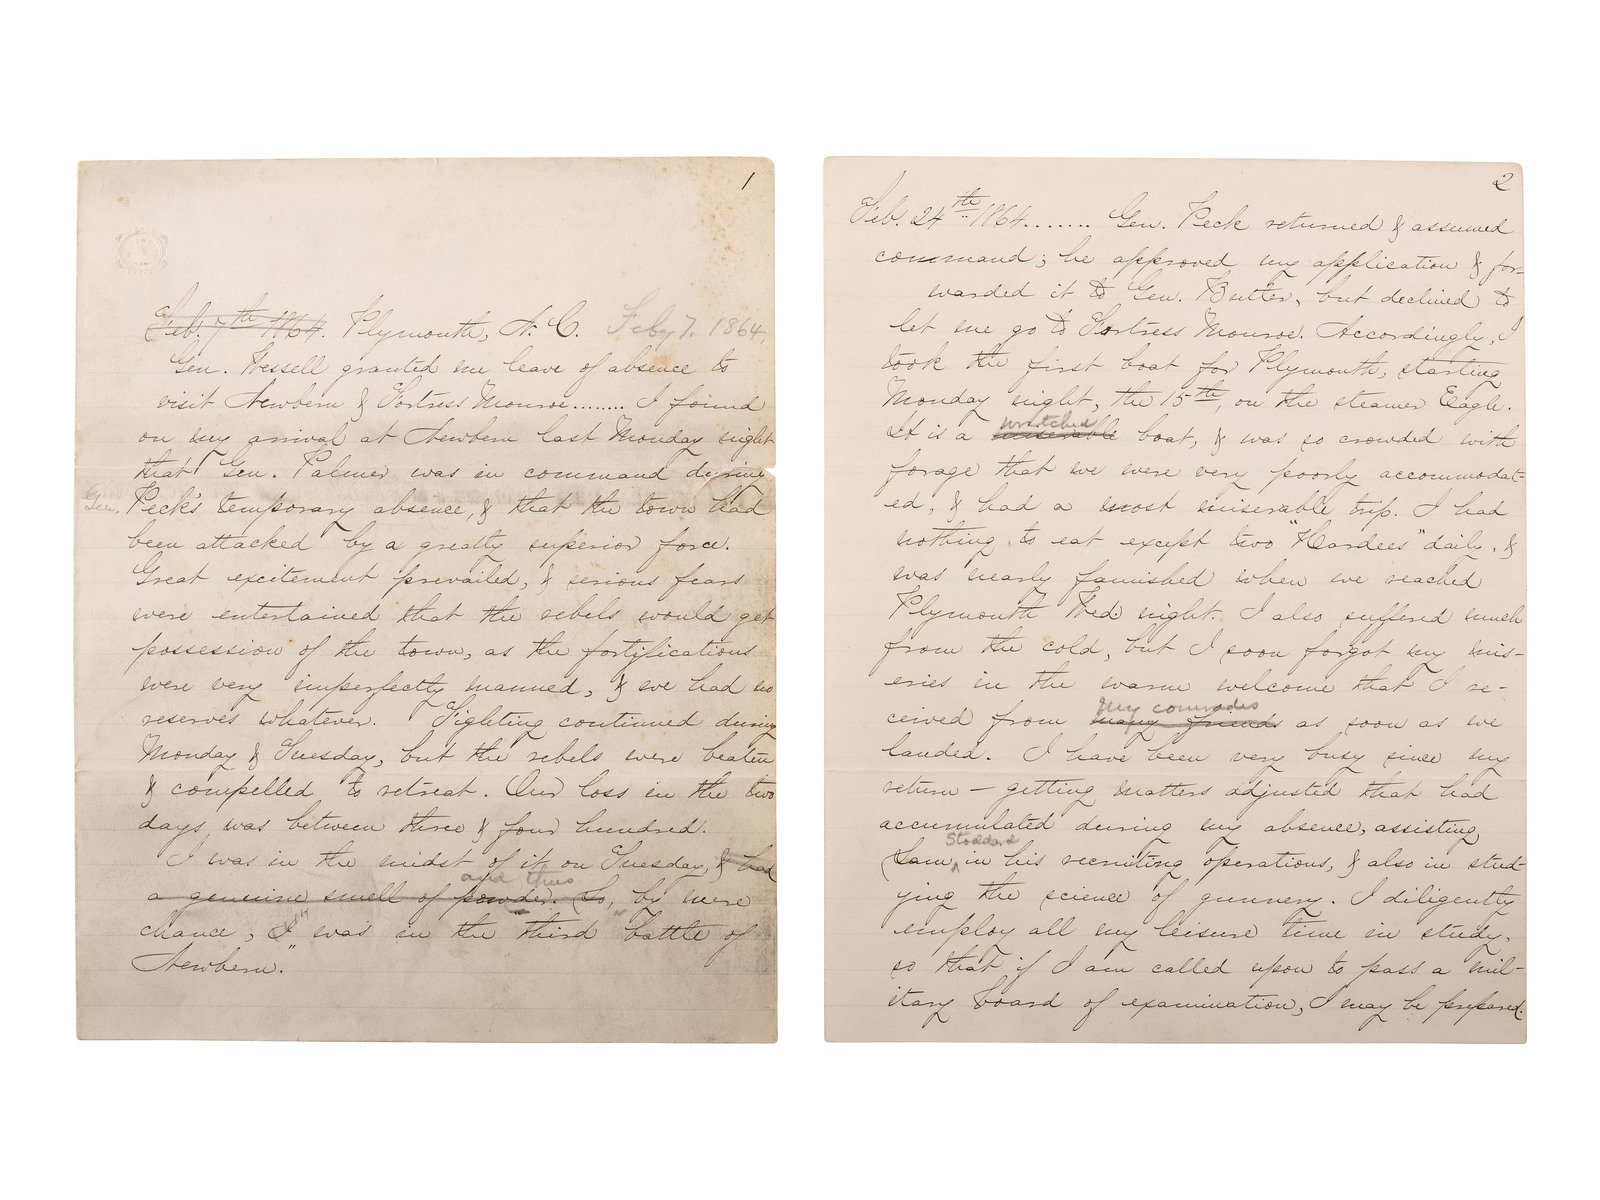 1
Feb. 7th 1864. Plymouth, N. C. Feby 7. 1864.
Gen. Wessell granted me leave of absence to
visit Newbern & Fortress Monroe........ I found
on my arrival at Newbern last Monday night
that Gen. Palmer was in command during
Gen. Peck's temporary absence, & that the town had
been attacked by a greatly superior force.
Great excitement prevailed, & serious fears
were entertained that the rebels would get
possession of the town, as the fortifications
were very imperfectly manned, & we had no
reserves whatever. Fighting continued during
Monday & Tuesday, but the rebels were beaten
& compelled to retreat. Our loss in the two
days was between three & four hundred.
I was in the midst of it on Tuesday, & had
and thus
a genuine smell of powder. So, by mere
chance, I was in the "third battle of
Newbern."
2
Feb. 24th 1864........ Gen. Peck returned & assumed
command; he approved my application & for-
warded it to Gen. Butler, but declined to
let me go to Fortress Monroe. Accordingly, I
took the first boat for Plymouth, starting
Monday night, the 15th, on the steamer Eagle.
wretched
It is a miserable boat, & was so crowded with
forage that we were very poorly accommodat-
ed, & had a most miserable trip. I had
nothing to eat except two "Hardees" daily, &
was nearly famished when we reached
Plymouth Wed. night. I also suffered much
from the cold, but I soon forgot my mis-
eries in the warm welcome that I re-
my comrades
ceived from many friends as soon as we
landed. I have been very busy since my
return - getting matters adjusted that had
accumulated during my absence, assisting
Stoddard
Sam in his recruiting operations, & also in stud-
ying the science of gunnery. I diligently
employ all my leisure time in study,
so that if I am called upon to pass a mil-
itary board of examination, I may be prepared.